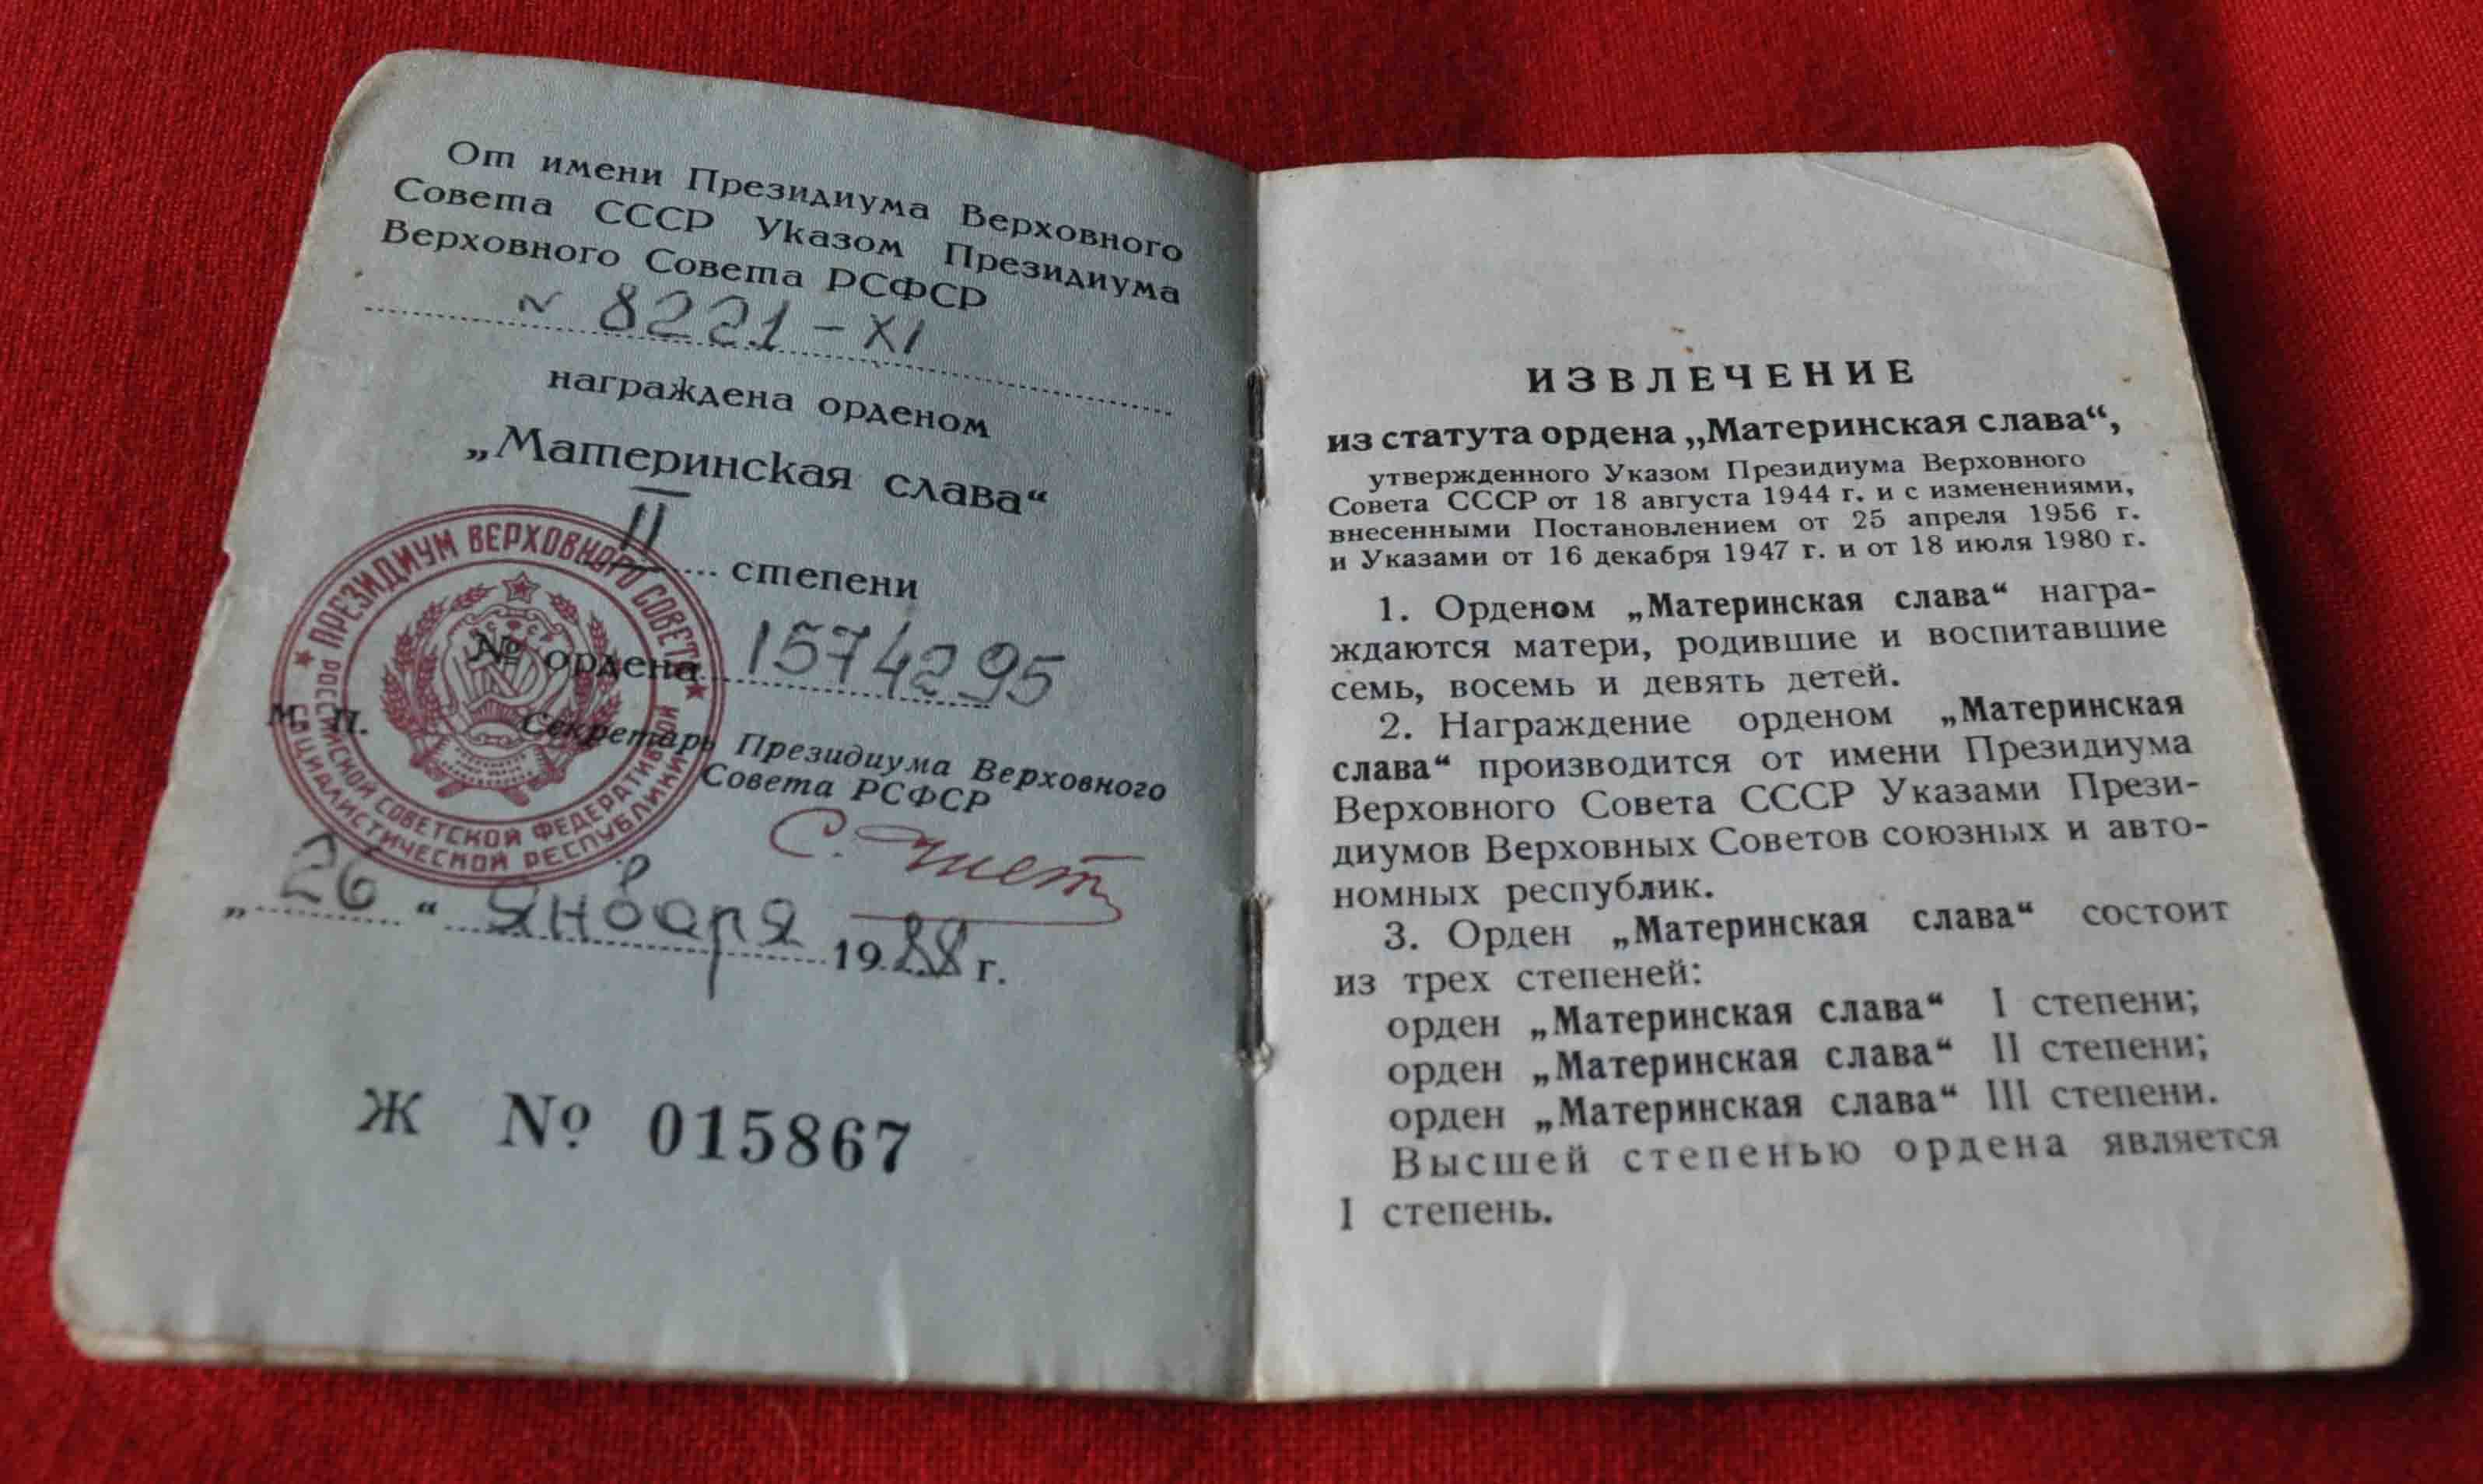 От имени Президиума Верховного
Совета СССР Указом Президиума
Верховного Совета РСФСР
N 8221 - XI
награждена орденом
„Материнская слава“
II степени
№ ордена 1574295
М. П.
Секретарь Президиума Верховного
Совета РСФСР
„26“ января 1988 г.
Ж № 015867
ПРЕЗИДИУМ ВЕРХОВНОГО СОВЕТА
РОССИЙСКОЙ СОВЕТСКОЙ ФЕДЕРАТИВНОЙ
СОЦИАЛИСТИЧЕСКОЙ РЕСПУБЛИКИ
ИЗВЛЕЧЕНИЕ
из статута ордена „Материнская слава“,
утвержденного Указом Президиума Верховного
Совета СССР от 18 августа 1944 г. и с изменениями,
внесенными Постановлением от 25 апреля 1956 г.
и Указами от 16 декабря 1947 г. и от 18 июля 1980 г.
1. Орденом „Материнская слава“ награ-
ждаются матери, родившие и воспитавшие
семь, восемь и девять детей.
2. Награждение орденом „Материнская
слава“ производится от имени Президиума
Верховного Совета СССР Указами Прези-
диумов Верховных Советов союзных и авто-
номных республик.
3. Орден „Материнская слава“ состоит
из трех степеней:
орден „Материнская слава“ I степени;
орден „Материнская слава“ II степени;
орден „Материнская слава“ III степени.
Высшей степенью ордена является
I степень.